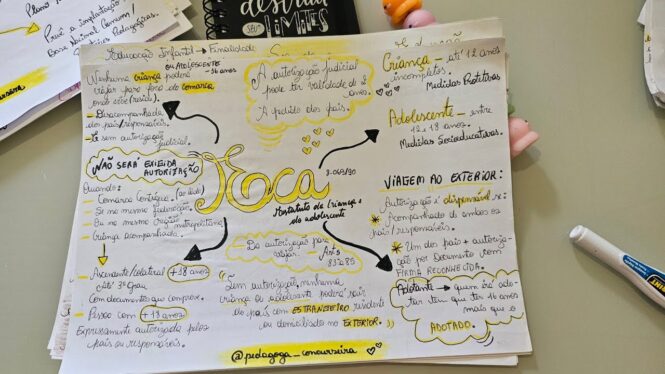 Prevê a implantação
Base Nacional Comum
Pedagógicas.
destrua
SEUS
LIMITES
Educação Infantil → Finalidade
ou ADOLESCENTE
-16 anos
Nenhuma criança poderá
viajar para fora da comarca
onde reside
- Desacompanhada
dos pais/responsáveis.
- E sem autorização
judicial.
A autorização judicial
pode ter validade de 2
anos.
A pedido dos pais.
Criança - até 12 anos
incompletos.
Medidas Protetivas
Adolescente - entre
12 e 18 anos.
Medidas Socioeducativas.
NÃO SERÁ EXIGIDA
AUTORIZAÇÃO
Quando:
- Comarca Contígua.
- Se na mesma federação.
Ou na mesma região metropolitana
- Criança acompanhada.
Ascendente/colateral +18 anos
até 3º Grau
Com documentos que comprove.
- Pessoa com +18 anos
Expressamente autorizada pelos
pais ou responsáveis.
Eca
8.069/90
Estatuto da Criança e
do adolescente
- Da autorização para
viajar. Arts
83 a 85
Sem autorização, nenhuma
criança ou adolescente poderá sair
do país com ESTRANGEIRO residente
ou domiciliado no EXTERIOR.
VIAGEM AO EXTERIOR:
Autorização é dispensável se:
* Acompanhado de ambos os
pais/responsáveis.
* Um dos pais + autoriza-
ção por documento com
FIRMA RECONHECIDA.
Adotante → quem irá ado-
tar tem que ter 16 anos
mais que o
ADOTADO.
@pedagoga_concurseira